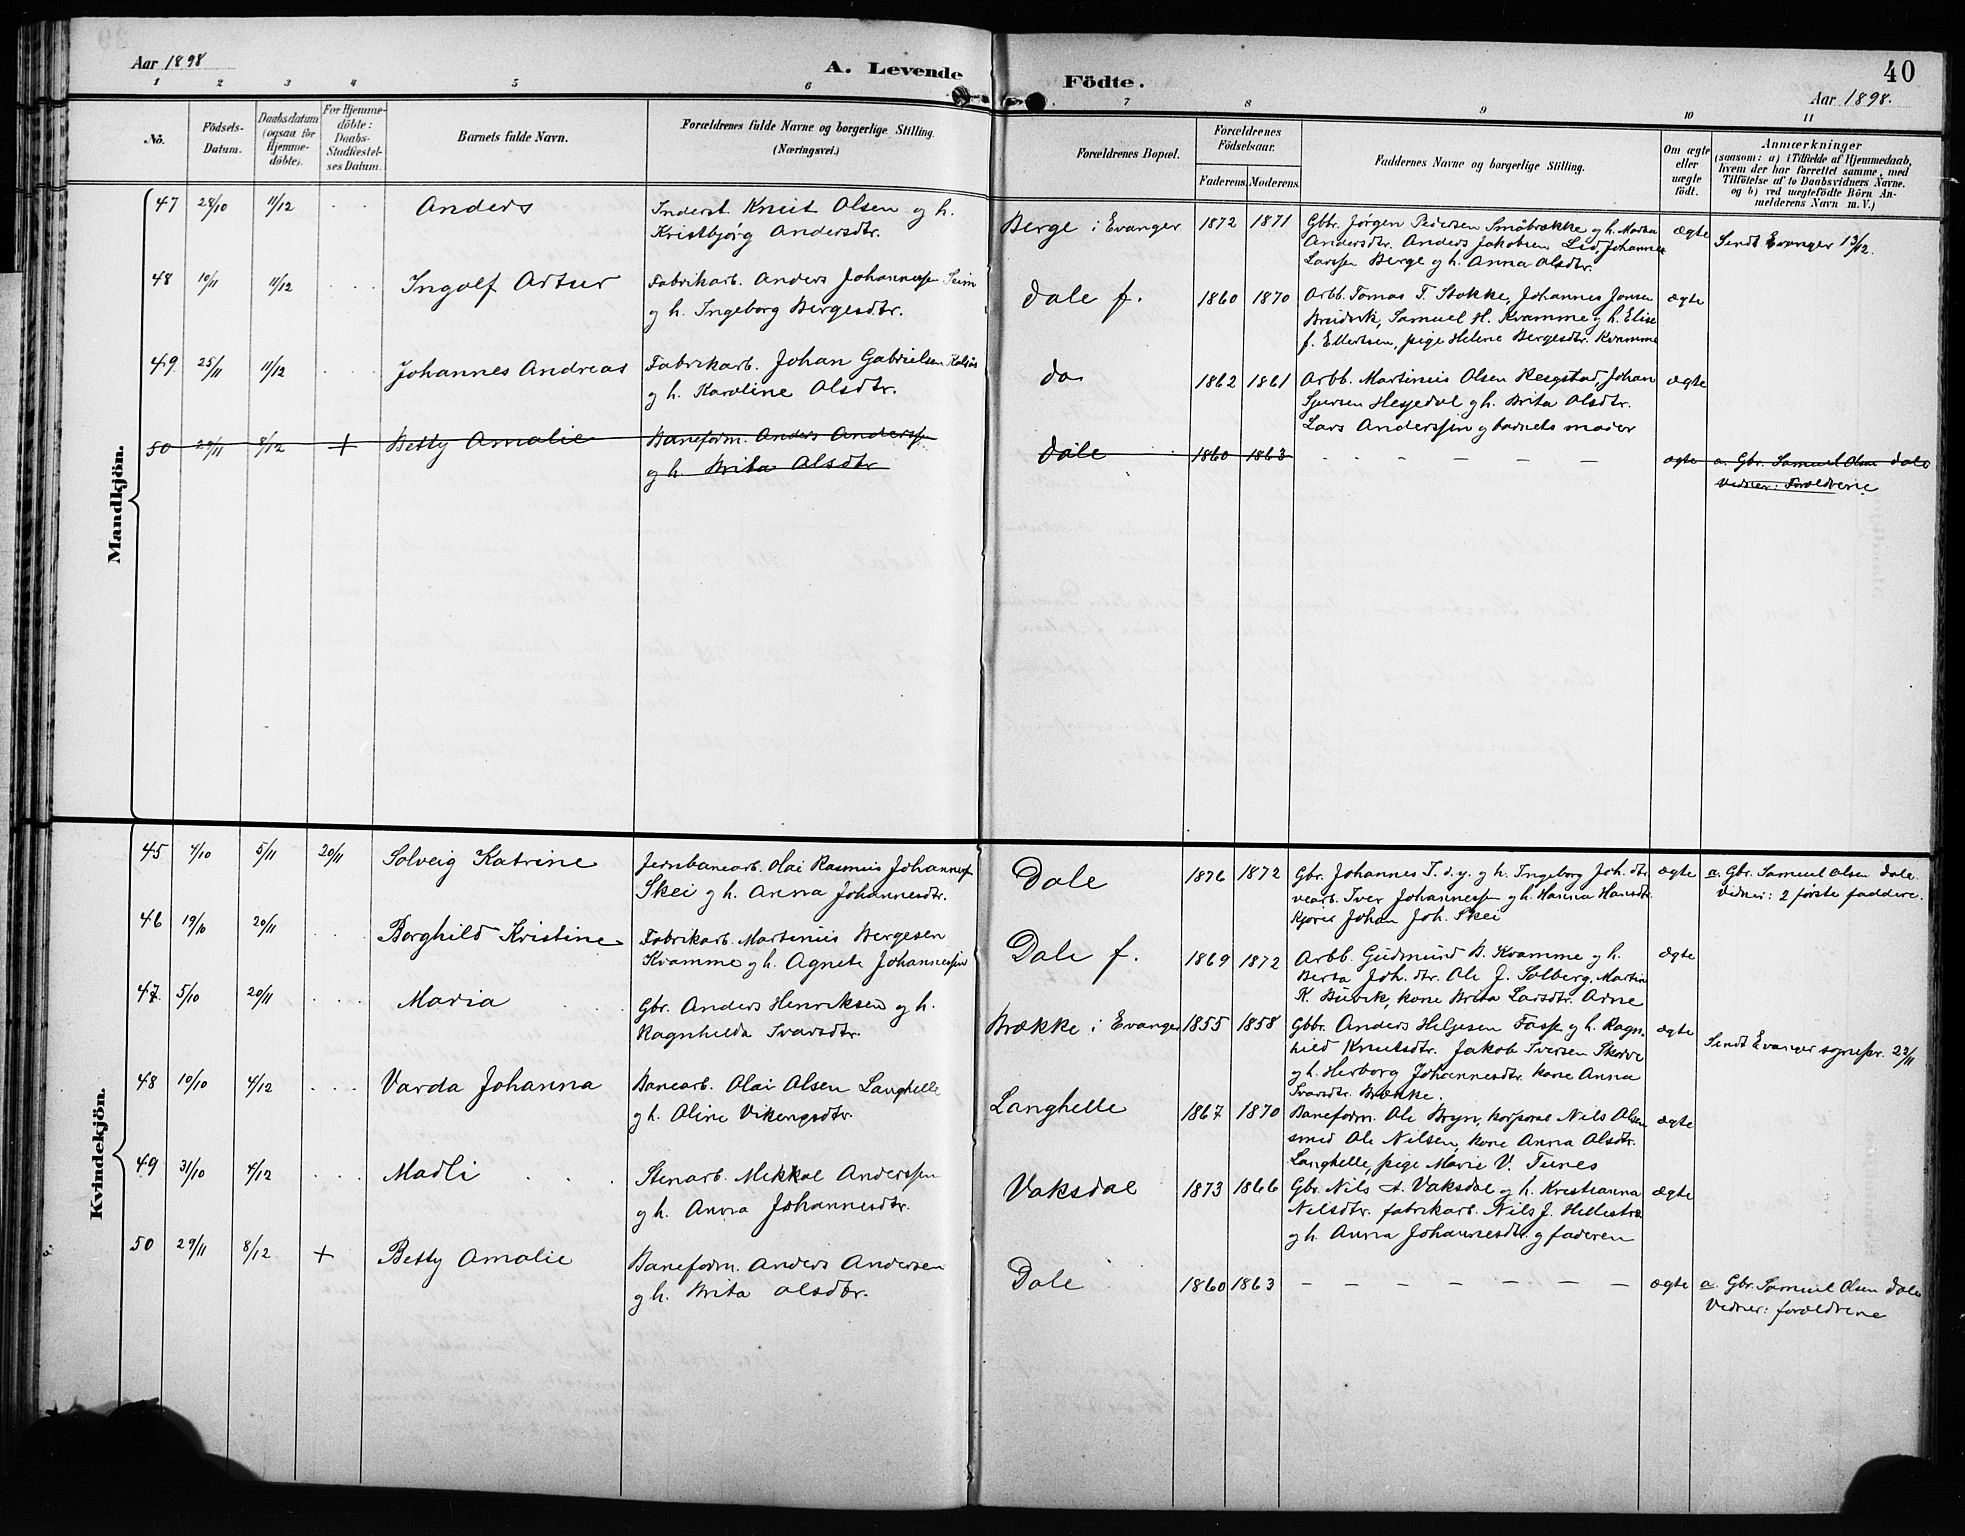 Aar 1898
A. Levende Födte.
40
Aar 1898.
1 2 3 4 5 6 7 8 9 10 11
No.
Födsels-Datum.
Daabsdatum (ogsaa for Hjemmedöbte).
For Hjemmedöbte: Daabs-Stadfæstelses Datum.
Barnets fulde Navn.
Forældrenes fulde Navne og borgerlige Stilling.
(Næringsvei.)
Forældrenes Bopæl.
Forældrenes Födselsaar.
Faderens. Moderens.
Faddernes Navne og borgerlige Stilling.
Om ægte eller uægte födt.
Anmærkninger
(saasom: a) i Tilfælde af Hjemmedaab,
hvem der har forrettet samme, med
Tilföielse af to Daabsvidners Navne.
og b) ved uægtefödte Börn An-
melderens Navn m.V.)
Mandkjön.
47 28/10 11/12 Anders Inderst Knut Olsen og h.
Kristbjørg Andersdtr.
Berge i Evanger 1872 1871 Gbr. Jørgen Pedersen Småbrække og h. Marta
Andersdtr. Anders Jakobsen Lid, Johannes
Larssen Berge og h. Anna Olsdtr.
ægte Sendt Evanger 13/12.
48 10/11 11/12 Ingolf Artur Fabrikarb. Anders Johannessen Seim
og h. Ingeborg Bergesdtr.
Dale f. 1860 1870 Arbb. Tomas T. Stokke, Johannes Jonsen
Breidvik, Samuel H. Kvamme og h. Elise
f. Ellertsen, pige Helene Bergesdtr. Kvamme
ægte
49 25/11 11/12 Johannes Andreas Fabrikarb. Johan Gabrielsen Kalsås
og h. Karoline Olsdtr.
do 1862 1861 Arbb. Martinus Olsen Hesgstad, Johan
Sjursen Hesjedal og h. Brita Olsdtr.
Lars Anderssen og barnets moder
ægte
50 29/11 8/12 + Betty Amalie Baneform. Anders Anderssen
og h. Brita Olsdtr
Dale 1860 1863 ægte a. Gbr. Samuel Olsen Dale
Vidner: Forældrene
Kvindekjön.
45 4/10 5/11 20/11 Solveig Katrine Jernbanearb. Olai Rasmus Johanness.
Skei og h. Anna Johannesdtr.
Dale 1876 1872 Gbr. Johannes T. d.y. og h. Ingeborg Joh.dtr.
vearb. Iver Johannessen og h. Hanna Hansdtr.
Kjører Johan Joh. Skei
ægte a. Gbr. Samuel Olsen Dale.
Vidner: 2 første faddere.
46 19/10 20/11 Borghild Kristine Fabrikarb. Martinus Bergesen
Kvamme og h. Agnete Johannessen
Dale f. 1869 1872 Arbb. Gudmund B. Kvamme og h.
Berta Joh.dtr. Ole J. Solberg, Martin
K. Buvik, kone Brita Larsdtr. Arne
ægte
47. 5/10 20/11 Maria Gbr. Anders Henriksen og h.
Ragnhilda Ivarsdtr.
Brække i Evanger 1855 1858 Gbbr. Anders Helgesen Fasse og h. Ragn-
hild Knutsdtr. Jakob Iversen Skorve
og h. Herborg Johannesdtr. kone Anna
Ivarsdtr. Brække.
ægte Sendt Evanger sognepr. 22/11
48 10/10 4/12 Varda Johanna Banearb. Olai Olsen Langhelle
og h. Oline Vikingsdtr.
Langhelle 1867 1870 Baneform. Ole Bryn, korporal Nils Olsen
smed Ole Nilsen, kone Anna Olsdtr.
Langhelle, pige Marie V. Tunes
ægte
49 31/10 4/12 Madli Stenarb. Mikkal Anderssen
og h. Anna Johannesdtr.
Vaksdal 1873 1866 Gbr. Nils A. Vaksdal og h. Kristianna
Nilsdtr. fabrikarb. Nils J. Hellestræ
og h. Anna Johannesdtr. og faderen
ægte
50 29/11 8/12 + Betty Amalie Baneform. Anders Andersen
og h. Brita Olsdtr.
Dale 1860 1863 ægte a. Gbr. Samuel Olsen Dale
Vidner: forældrene